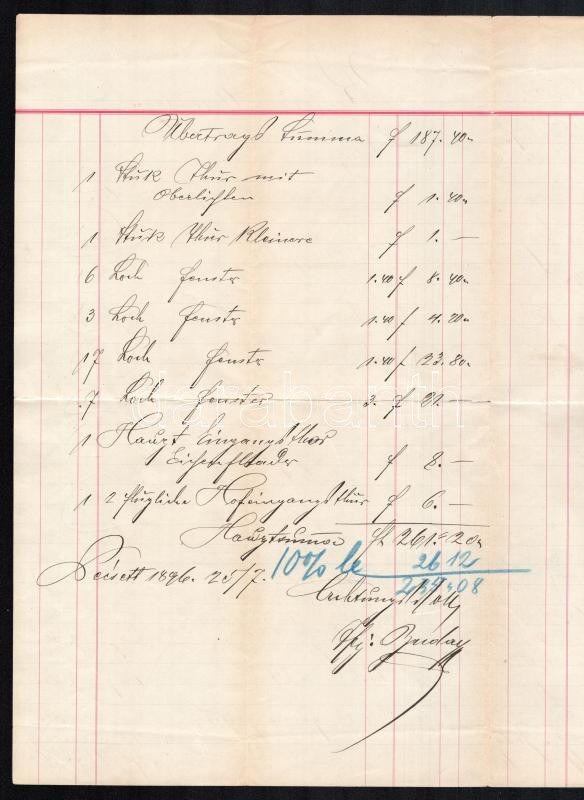 Übertrags Summa f 187.40
1 Stük Thür mit
Oberlichten f 1.40
1 Stük Thür Kleinere f 1.—
6 Loch fenster 1.40 f 8.40
3 Loch fenster 1.40 f 4.20
17 Loch fenster 1.40 f 23.80
7 Loch fenster 3. f 21.—
1 Haupt Eingangsthor
f 8.—
1 2 flügliche Hofeingangsthür f 6.—
Hauptsumma fl 261.20
1896. 25/7. 10% le 26 12
08
Achtungsvoll
Buday
darabanth